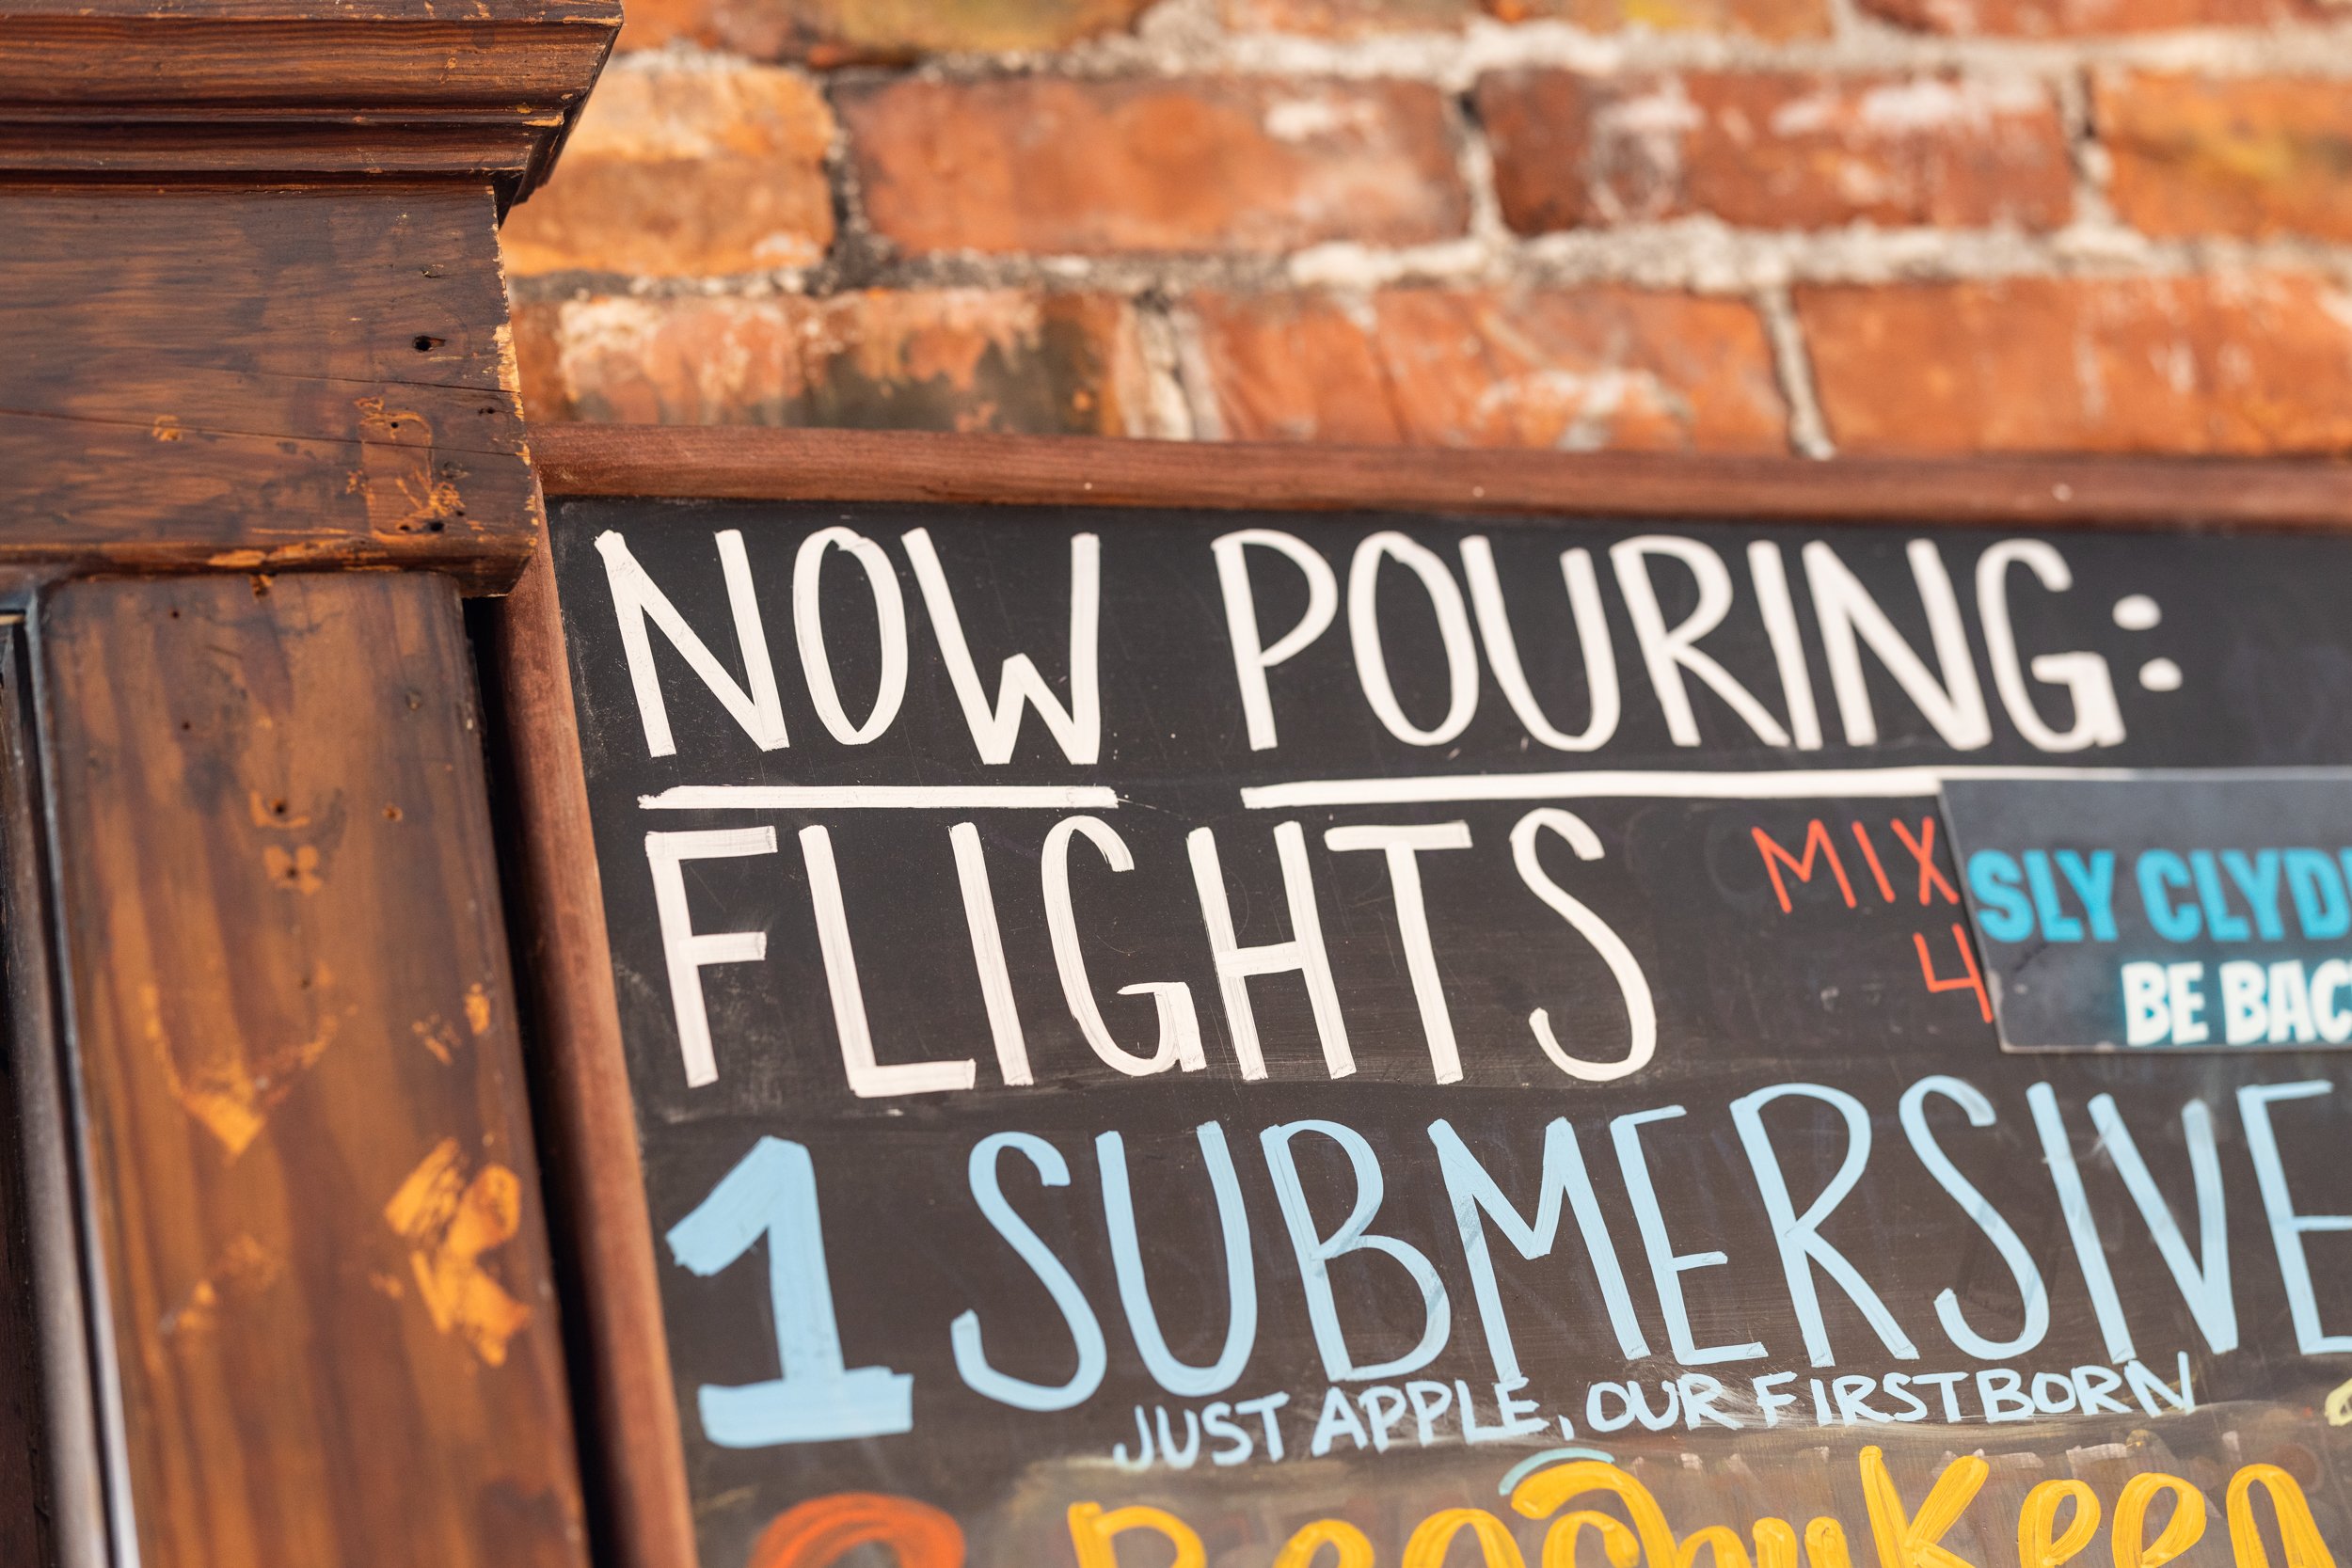 NOW POURING:
FLIGHTS
MIX
4
SLY CLYD
BE BAC
1 SUBMERSIVE
JUST APPLE, OUR FIRSTBORN
Peachy Keen